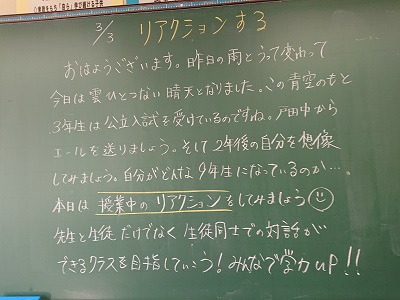 3/3 リアクションする
おはようございます。昨日の雨とうって変わって
今日は雲ひとつない晴天となりました。この青空のもと
3年生は公立入試を受けているのですね。戸田中から
エールを送りましょう。そして2年後の自分を想像
してみましょう。自分がどんな9年生になっているのか…。
本日は 授業中のリアクションをしてみましょう
先生と生徒だけでなく生徒同士での対話が
できるクラスを目指していこう!みんなで学力up!!